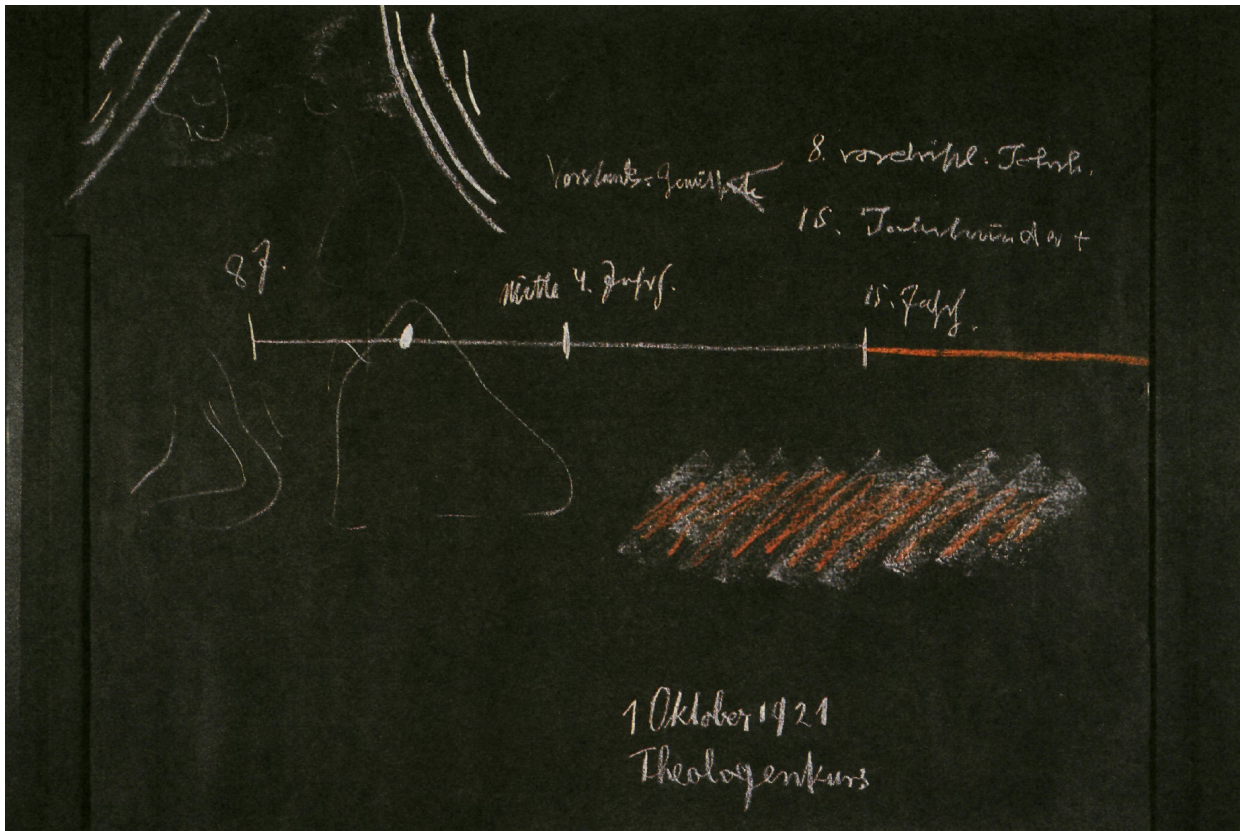 Verstands=Gemütsseele
8. vorchristl. Jahrh.
15. Jahrhundert
8 J.
Mitte 4. Jahrh.
15. Jahrh.
1 Oktober 1921
Theologenkurs